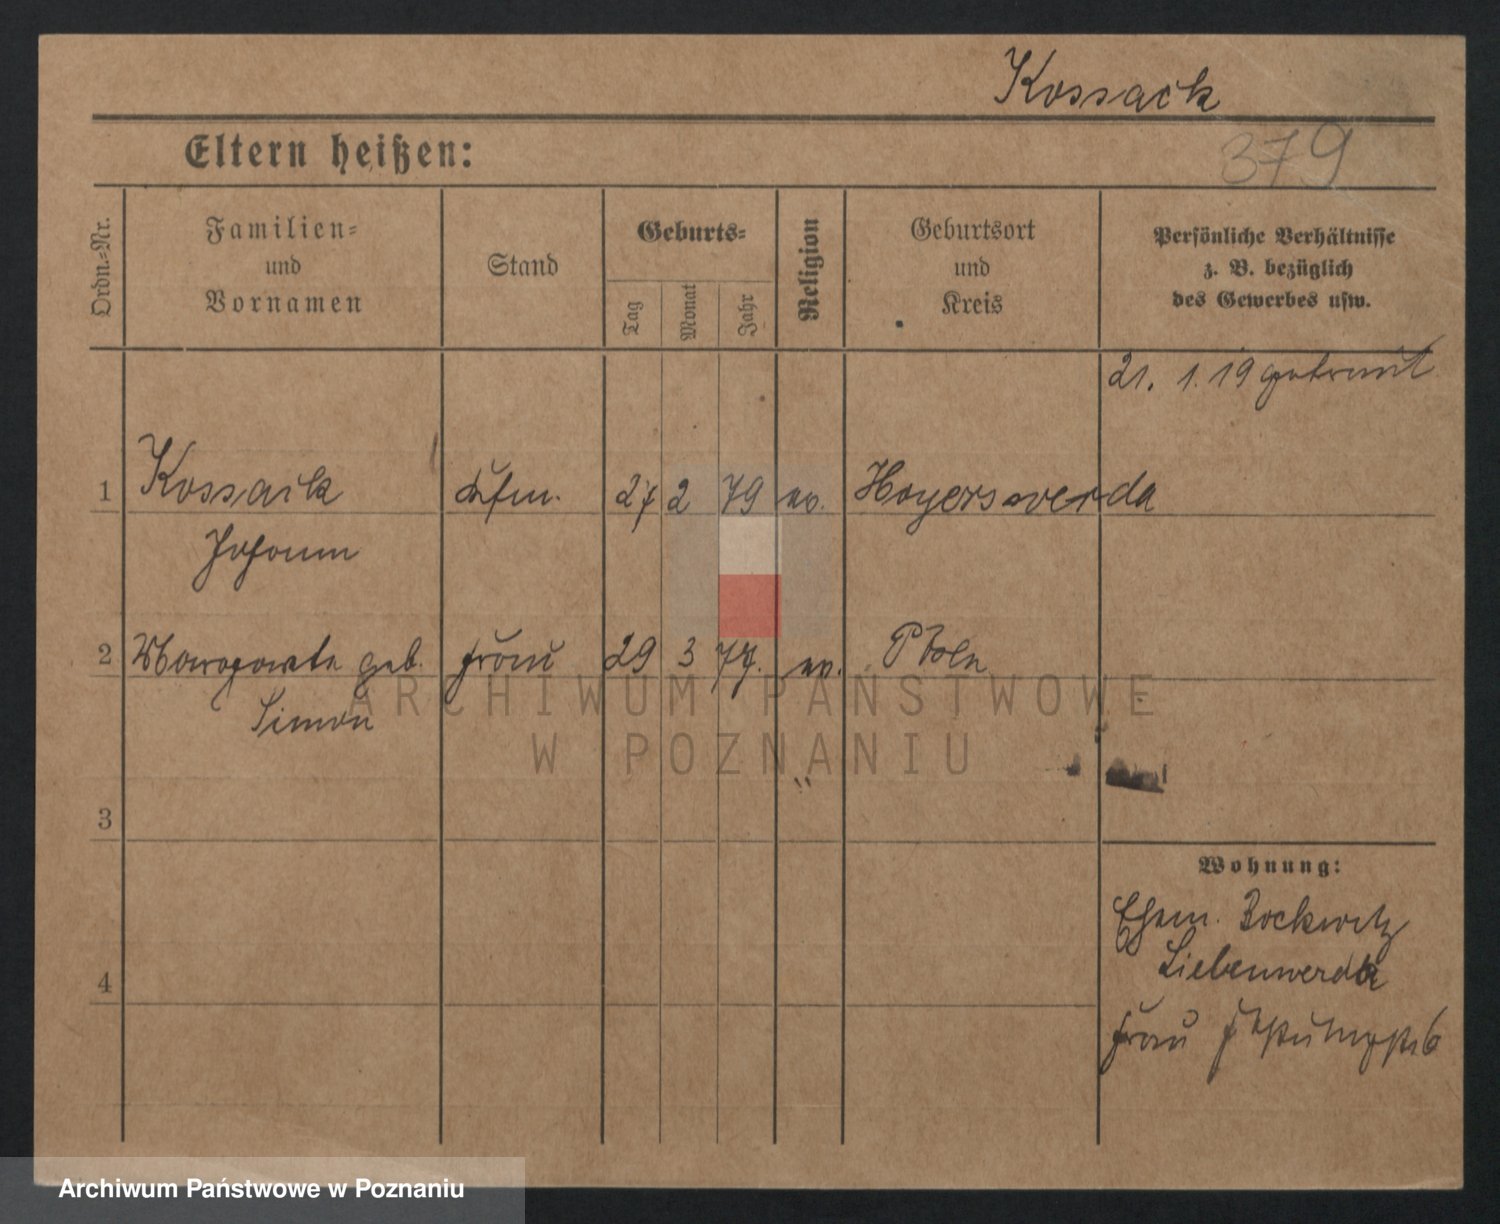 Kossack
379
Eltern heißen:
Ordn.-Nr.
Familien-
und
Vornamen
Stand
Geburts-
Tag
Monat
Jahr
Religion
Geburtsort
und
Kreis
Persönliche Verhältnisse
z. B. bezüglich
des Gewerbes usw.
21. 1. 19 getraut
1 Kossack Kfm. 27 2 79 ev. Hoyerswerda
Johann
2 Margarete geb. Frau 29 3 77. ev.
Simon
ARCHIWUM PAŃSTWOWE
W POZNANIU
3
Wohnung:
Ehem. Bockwitz
Liebenwerda
4
Frau
Archiwum Państwowe w Poznaniu